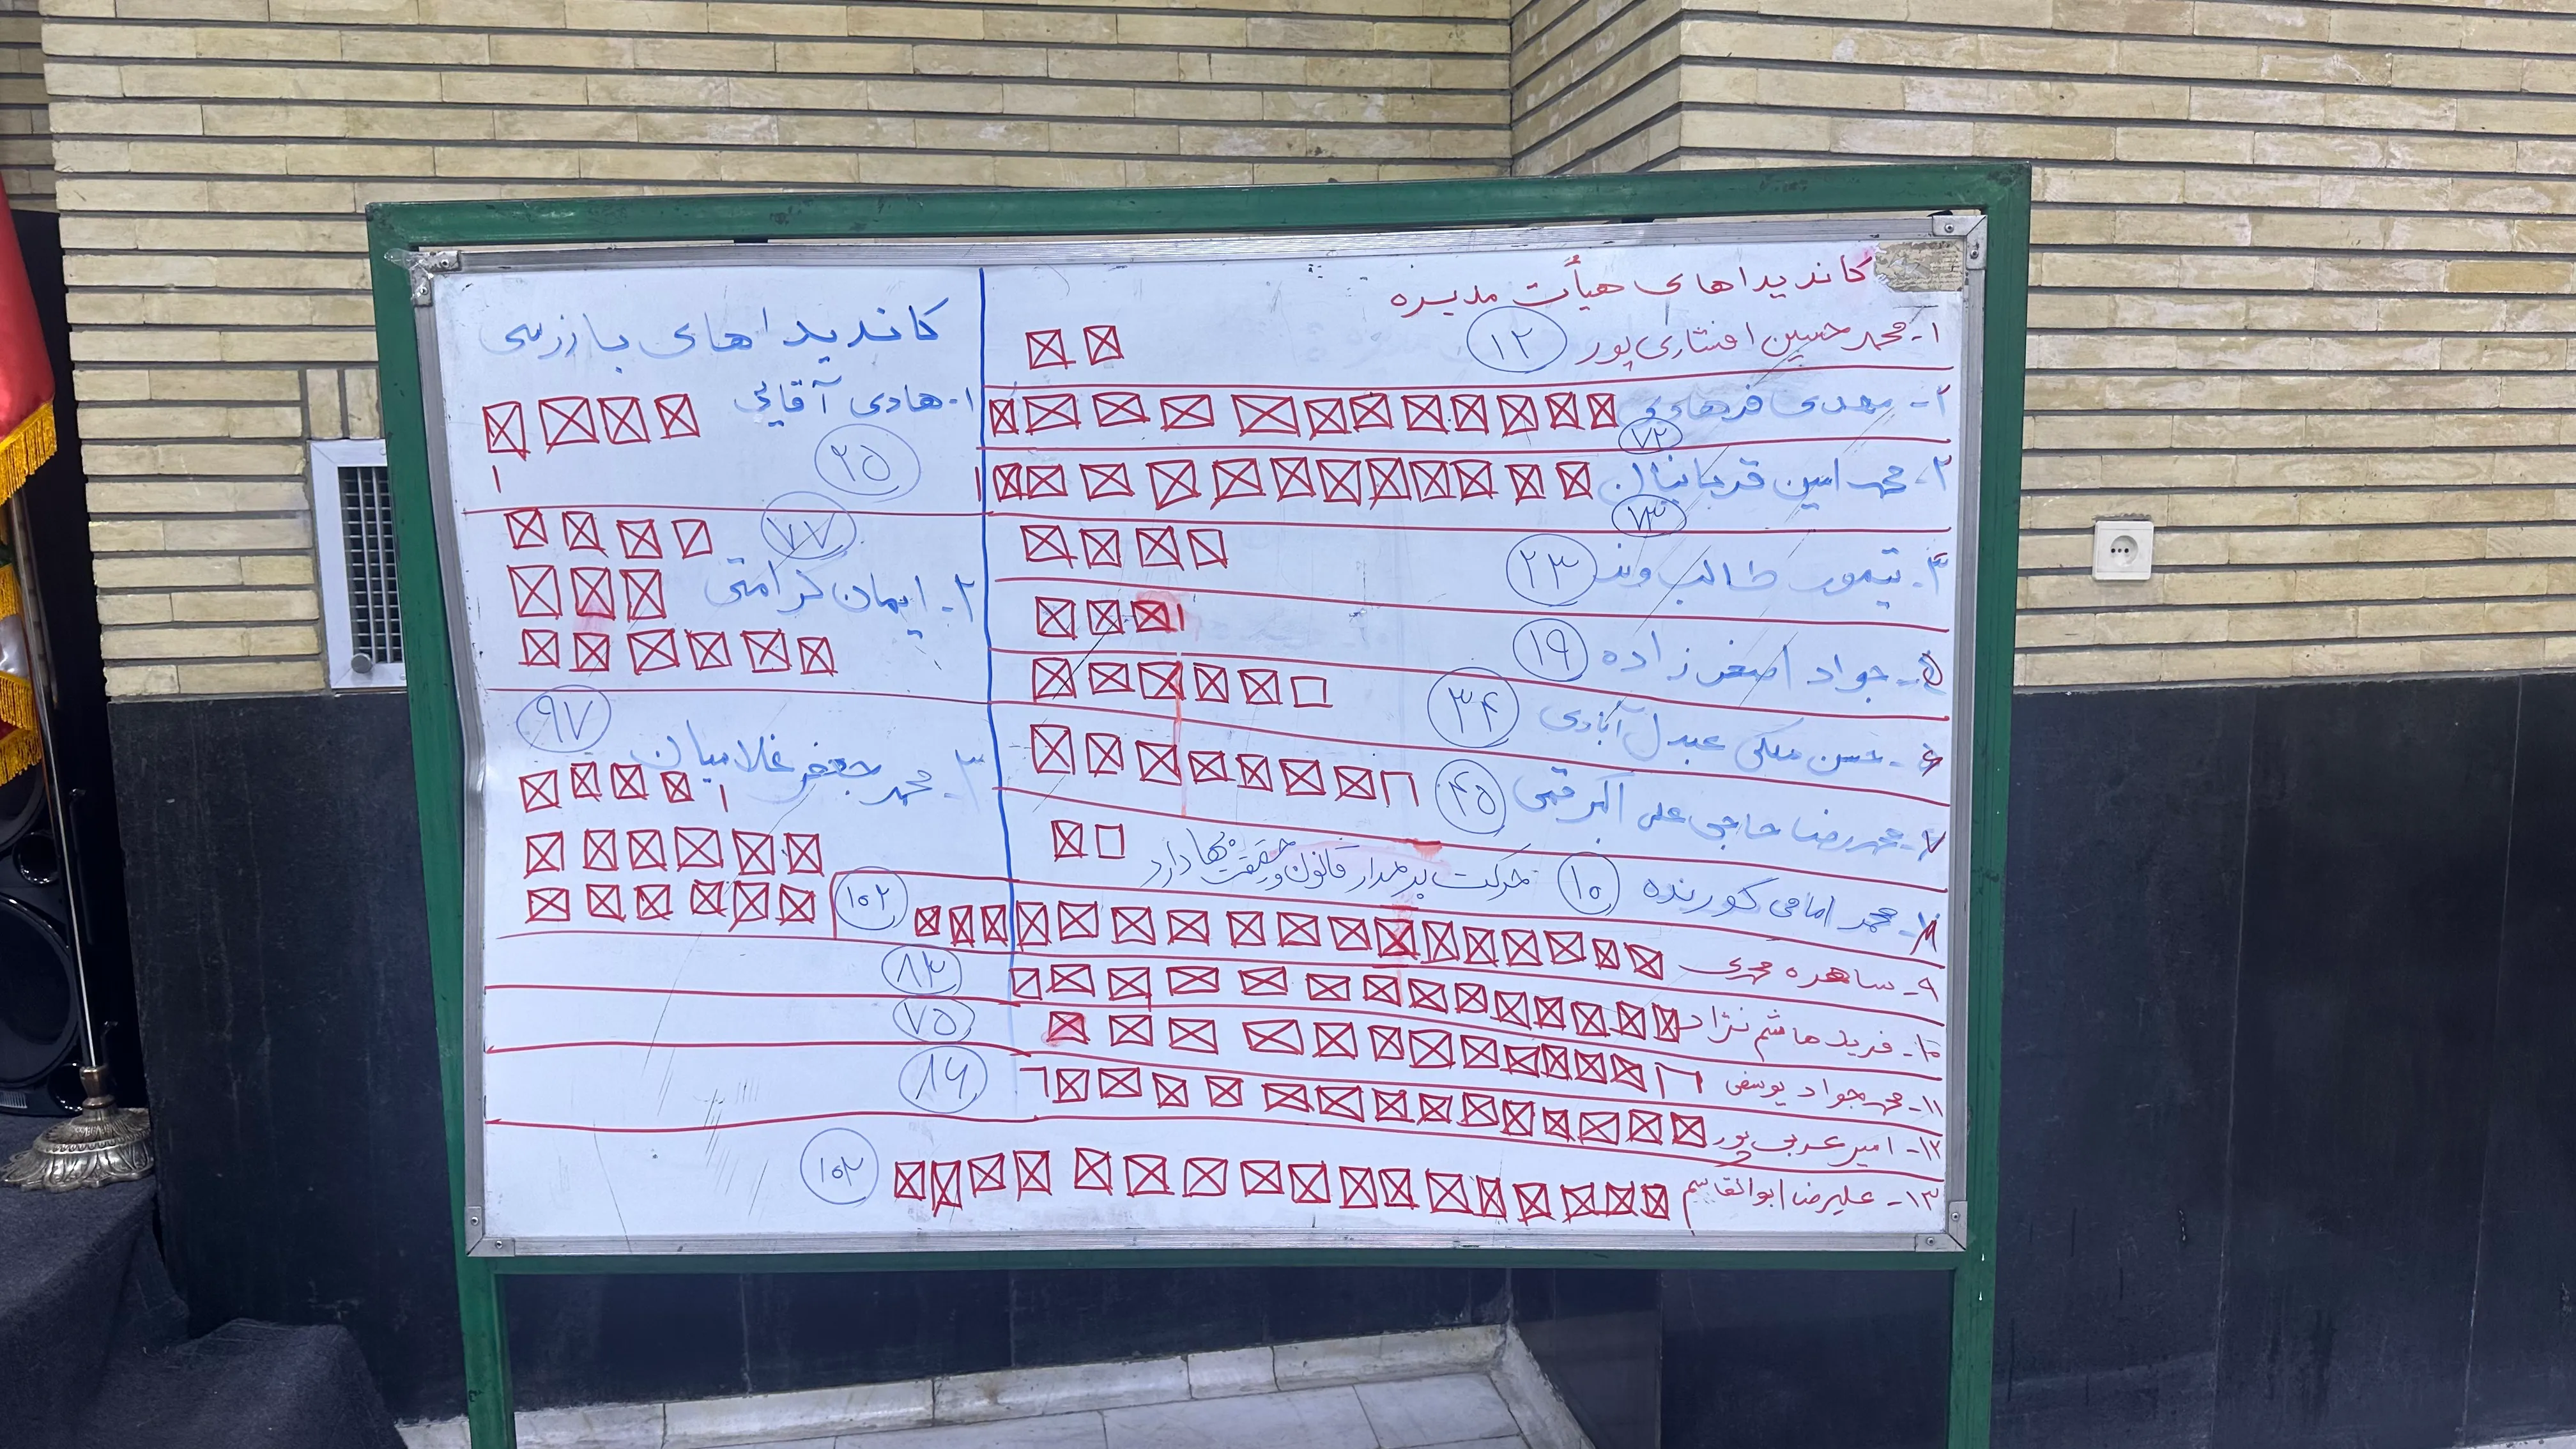 کاندیداهای هیأت مدیره
۱- محمد حسین افشاری پور ۱۲
۲- مهدی فرهادی ۷۲
۳- محمد امین قربانیان ۷۳
۴- تیمور طالب وند ۲۳
۵- جواد اصغر زاده ۱۹
۶- حسن ملکی عبدل آبادی ۳۴
۷- محمدرضا حاجی علی اکبر قمی ۴۵
۸- محمد امامی کورنده ۱۰
حرکت بر مدار قانون و حقیقت بها دارد
۹- ساهره محمدی ۱۰۲
۱۰- فرید هاشم نژاد ۸۳
۱۱- محمد جواد یوسفی ۷۵
۱۲- امیر عربی پور ۸۶
۱۳- علیرضا ابوالقاسم ۱۰۲
کاندیداهای بازرسی
۱- هادی آقایی
۲۵
۷۷
۲- ایمان کرامتی
۹۷
۳- محمد جعفر غلامیان